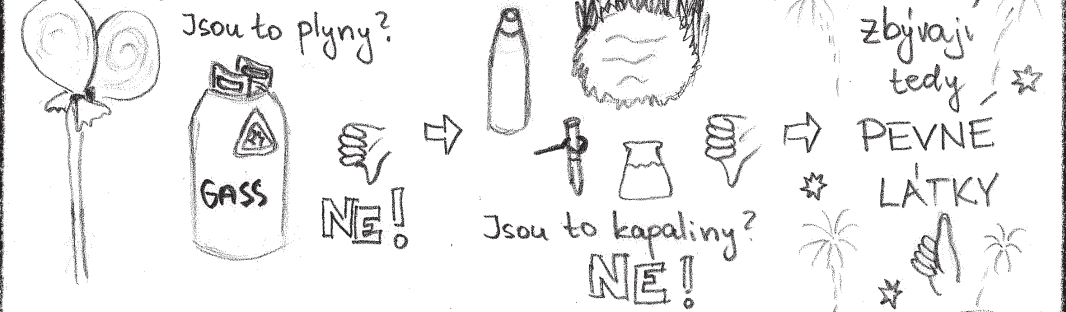 Jsou to plyny?
GASS
NE!
Jsou to kapaliny?
NE!
zbývají
tedy
PEVNÉ
LÁTKY